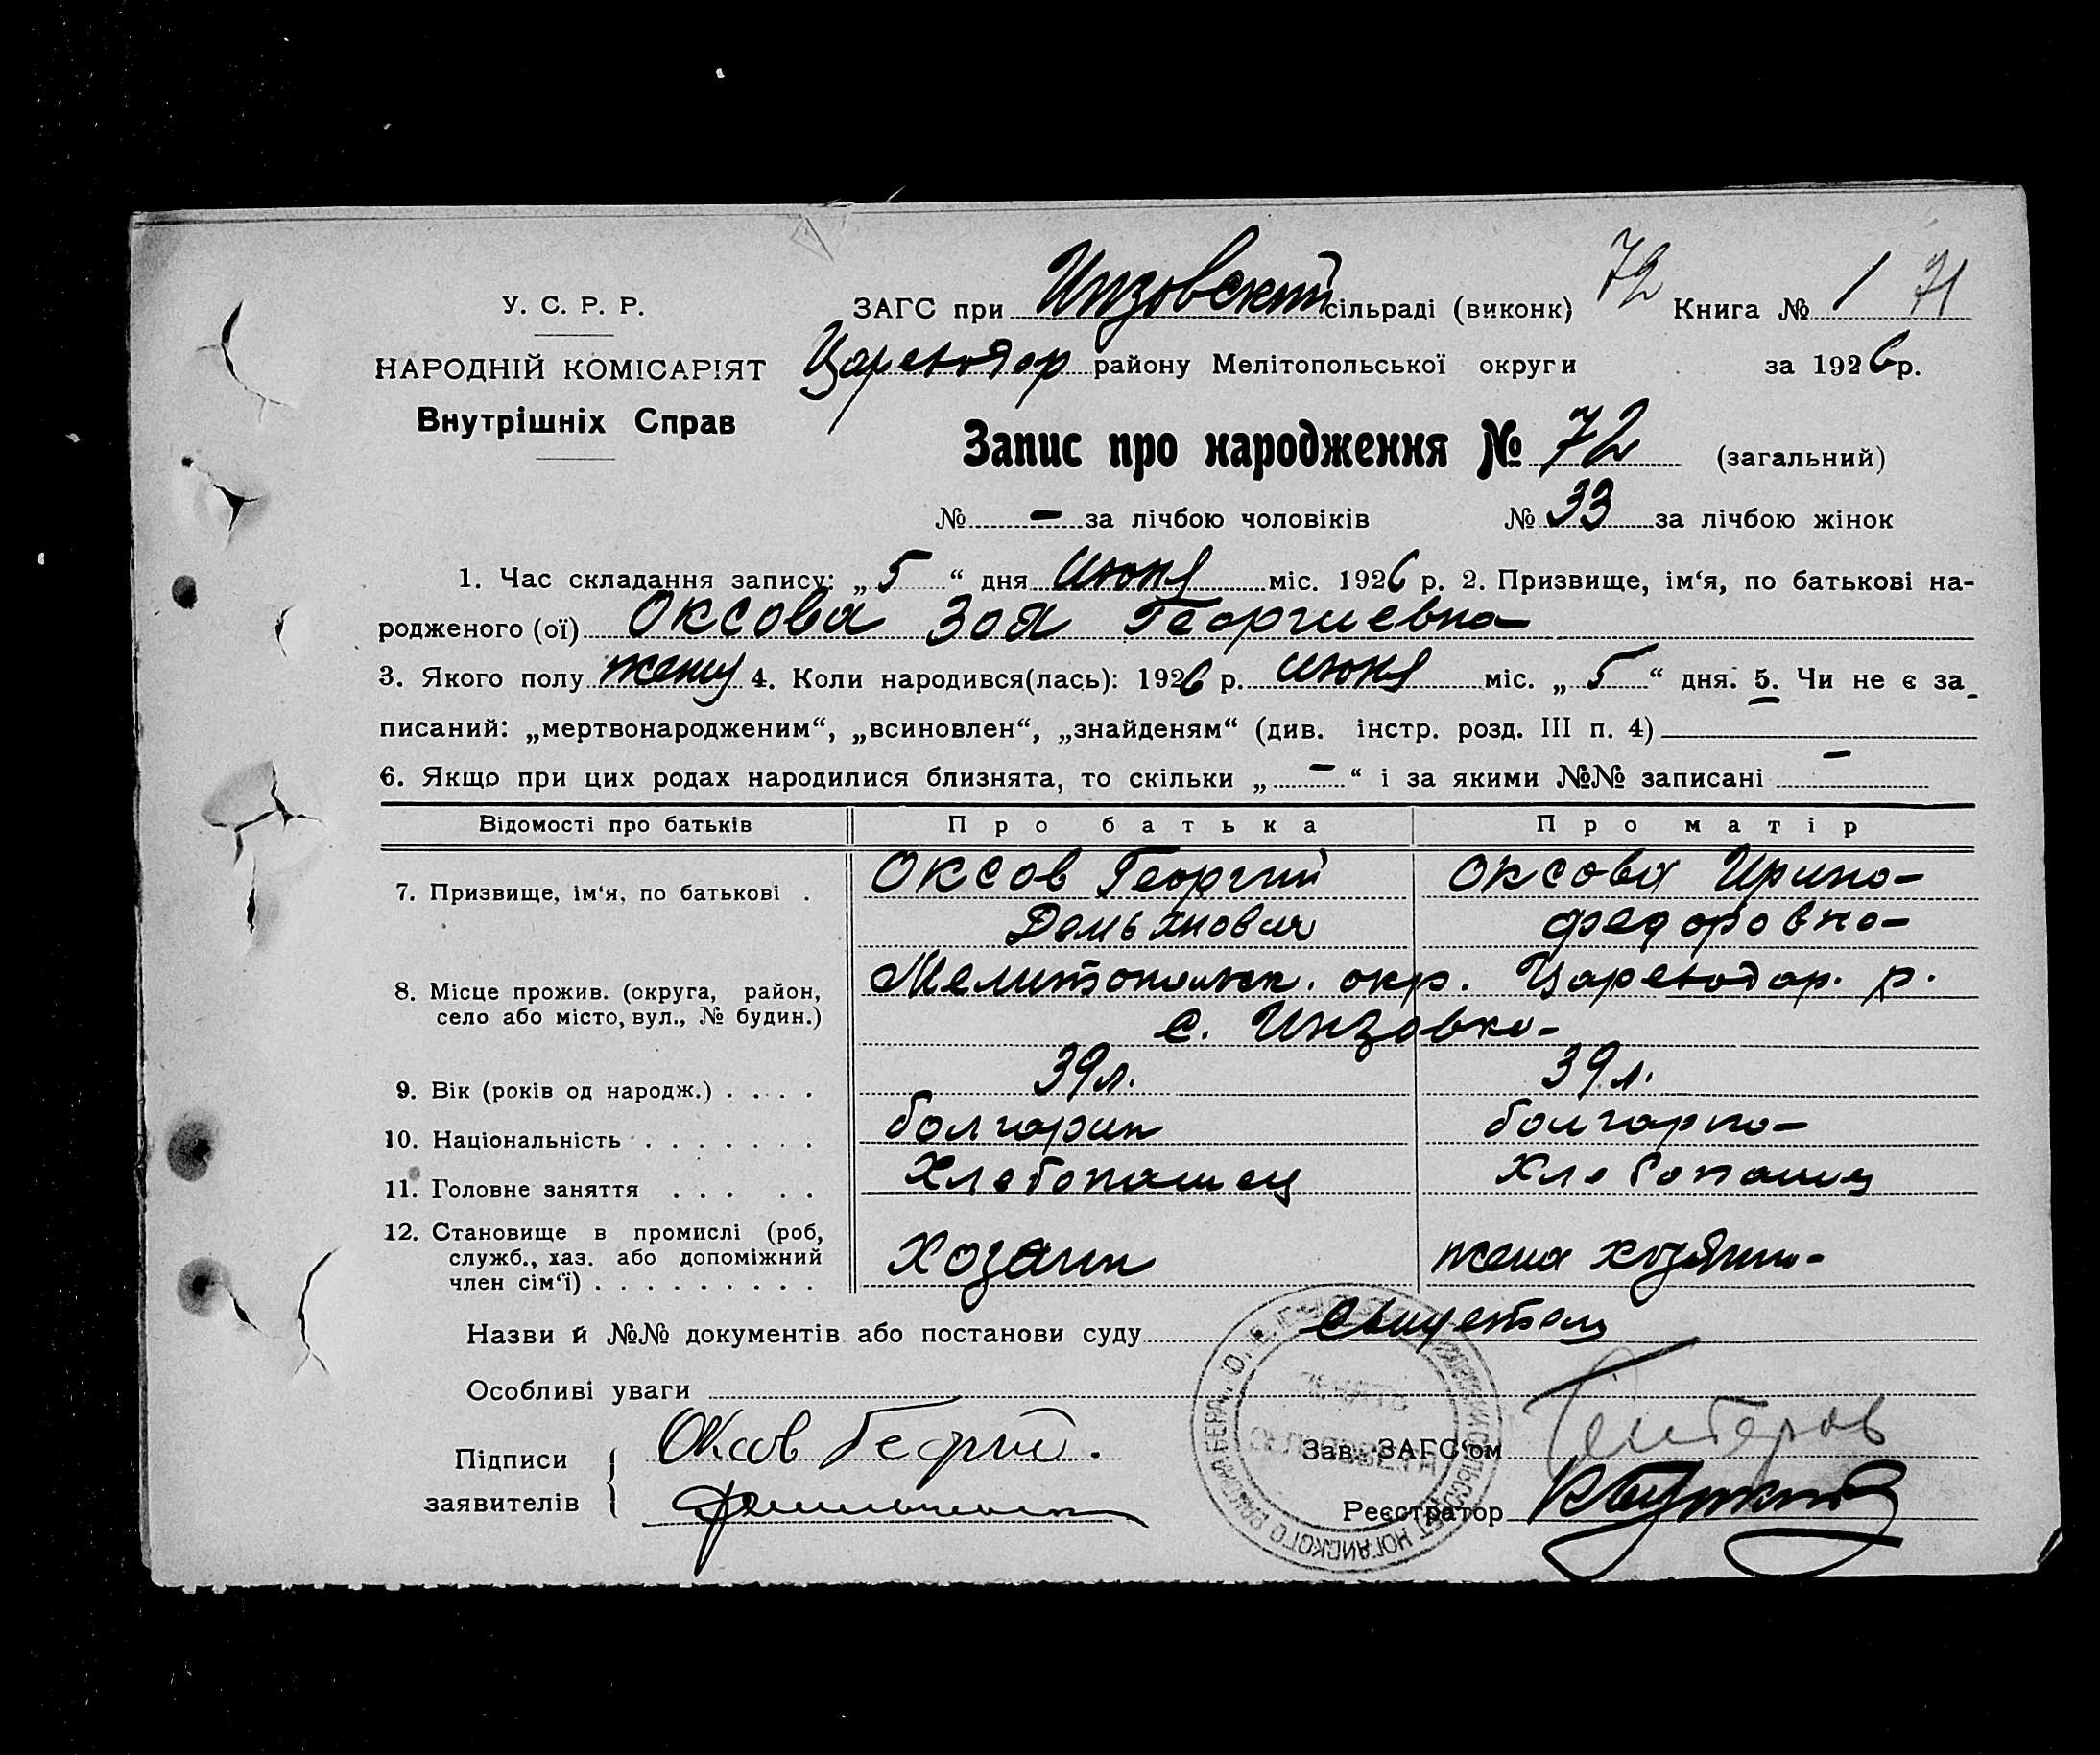 72
У. С. Р. Р.
ЗАГС при Инзовский сільраді (виконк) Книга № 1 71
НАРОДНІЙ КОМІСАРІЯТ
Цареводар району Мелітопольської округи за 1926 р.
Внутрішніх Справ
Запис про народження № 72 (загальний)
№ – за лічбою чоловіків № 33 за лічбою жінок
1. Час складання запису: „5“ дня июня міс. 1926 р. 2. Призвище, ім‘я, по батькові на-
родженого (ої) Оксова Зоя Георгиевна
3. Якого полу 4. Коли народився(лась): 1926 р. июня міс. „5“ дня. 5. Чи не є за-
писаний: „мертвонародженим“, „всиновлен“, „знайденям“ (див. інстр. розд. III п. 4)
6. Якщо при цих родах народилися близнята, то скільки „–“ і за якими №№ записані –
Відомості про батьків Про батька Про матір
7. Призвище, ім‘я, по батькові . Оксов Георгий Оксова Ирина
Демьянович Федоровна
8. Місце прожив. (округа, район, Мелитопольск. окр. Цареводар. р.
село або місто, вул., № будин.) с. Инзовка
9. Вік (років од народж.) . . . . 39 л. 39 л.
10. Національність . . . . . . . болгарин болгарка
11. Головне заняття . . . . . Хлебопашец Хлебопашец
12. Становище в промислі (роб,
служб., хаз. або допоміжний Хозяин жена хозяина
член сім‘ї) . . . . . . . . .
Назви й №№ документів або постанови суду свидетели
Особливі уваги
Підписи заявителів
Оксов Георгий.
Зав. ЗАГС‘ом
Реєстратор